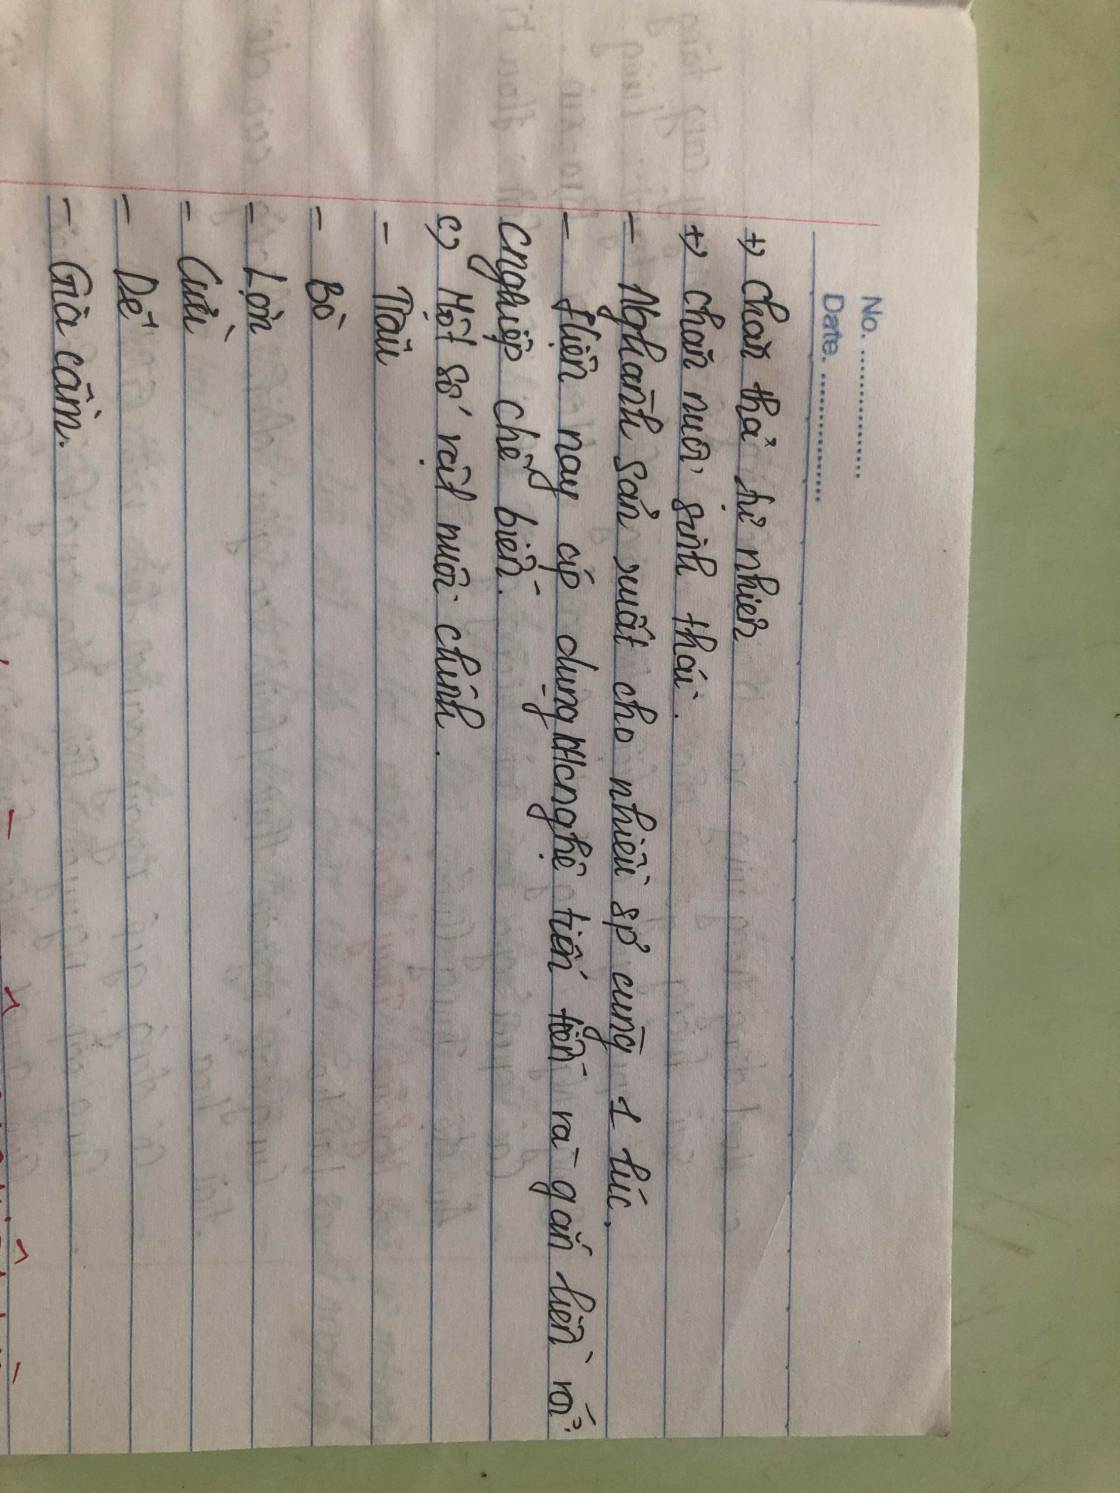 No. ..................
Date. ..................
+, chăn thả tự nhiên
+, chăn nuôi sinh thái.
- Nghành sản xuất cho nhiều sp cùng 1 lúc.
- Hiện nay áp dụng KHcnghệ tiên tiến và gắn liền với
cnghiệp chế biến.
c, Một số vật nuôi chính.
- Trâu
- Bò
- Lợn
- Cừu
- Dê
- Gia cầm.